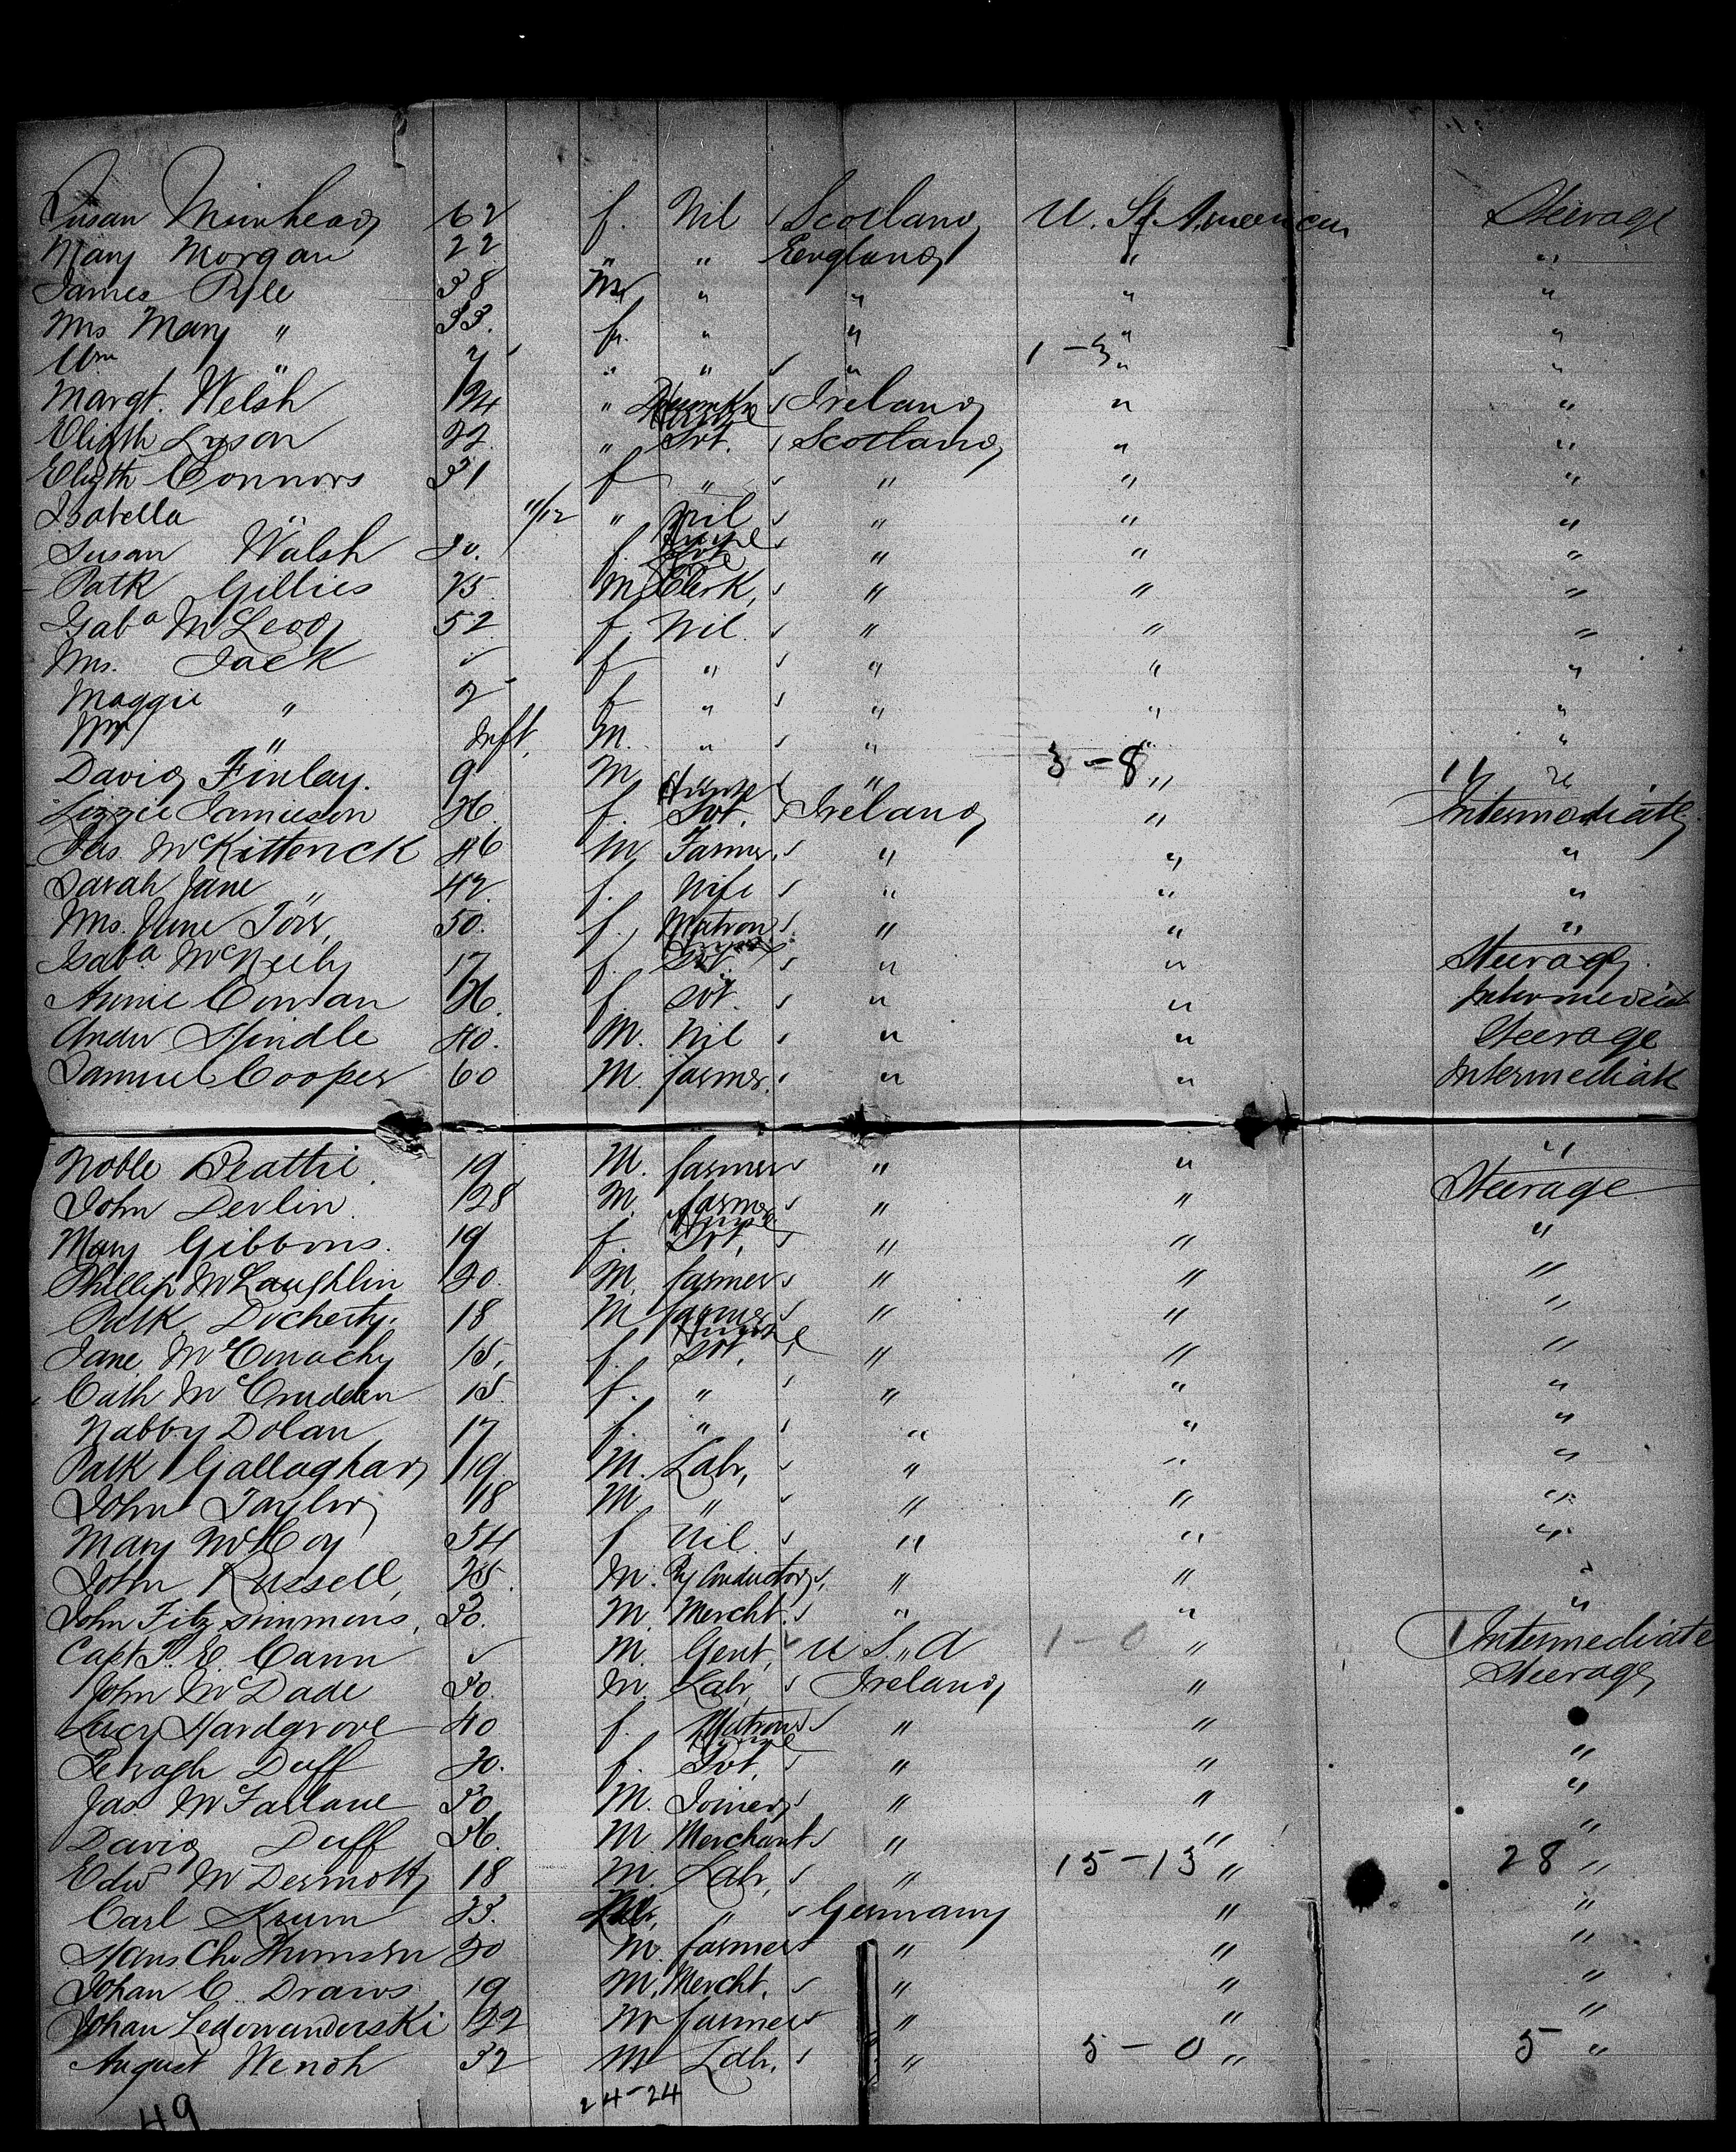 Susan Muirhead 62 f. Nil Scotland U. St America Steerage
Mary Morgan 22 " " England " "
James Pyle 38 M " " " "
Mrs Mary " 33. f. " " " "
Wm " 7 " " " 1-3 " "
Margt. Welsh 24 " Domestic Ireland " "
Elizth Lyson 22 " Svt. Scotland " "
Elizth Connors 31 f " " " "
Isabella " 11/12 " Nil " " "
Susan Walsh 20. f. Svt " " "
Patk Gillies 25 M Clerk, " " "
Isaba McLeod 52 f. Nil. " " "
Mrs. Jack f " " " "
Maggie " 2 f " " " "
Wm " Inft. M. " " " "
David Finlay. 9 M " 3-8 " 16 "
Lizzie Jamieson 26. f. House Svt. Ireland " Intermediate
Jas McKitterick 46 M Farmer " " "
Sarah Jane " 42. f. Wife " " "
Mrs. Jane Torr, 50. f. Matron " " "
Isaba McNeily 17 f. Svt. " " Steerage
Annie Conlan 26. f. Svt. " " Intermediate
Andw Spindle 40. M. Nil " " Steerage
Samuel Cooper 60 M. farmer. " " Intermediate
Noble Beattie. 19 M. farmer " " "
John Devlin 28 M. farmer " " Steerage
Mary Gibbons. 19 f. House Svt, " " "
Phillip McLaughlin 20. M. farmer " " "
Patk Docherty. 18 M farmer " " "
Jane McConachy 15, f. House Svt, " " "
Cath McCrudden 15 f. " " " "
Nabby Dolan 17 f. " " " "
Patk Gallaghar 19 M. Labr, " " "
John Taylor 18 M " " " "
Mary McCoy 54 f Nil. " " "
John Russell, 25. M. Ry Conductor, " " "
John Fitzsimmons, 30. M. Mercht. " " "
Capt P. E. Cann M. Gent, U S "A 1-0 " 1 Intermediate
John McDade 30. M. Labr, Ireland " Steerage
Lucy Hardgrove 40 f. Matron " "
Duff 20. f. Svt, " " "
Jas McFarlane 30 M. Joiner " " "
David Duff 36. M Merchant " " "
Edwd McDermott 18 M. Labr, " 15-13 " 28 "
Carl Krum 23. " Germany " "
Hans Chr Thomsen 20 M. farmer " " "
Johan C. Draws 19 M. Mercht. " " "
Johan Ledowanderski 22 M farmer " " "
August Wenoh 32 M Labr. " 5-0 " 5 "
24-24
49